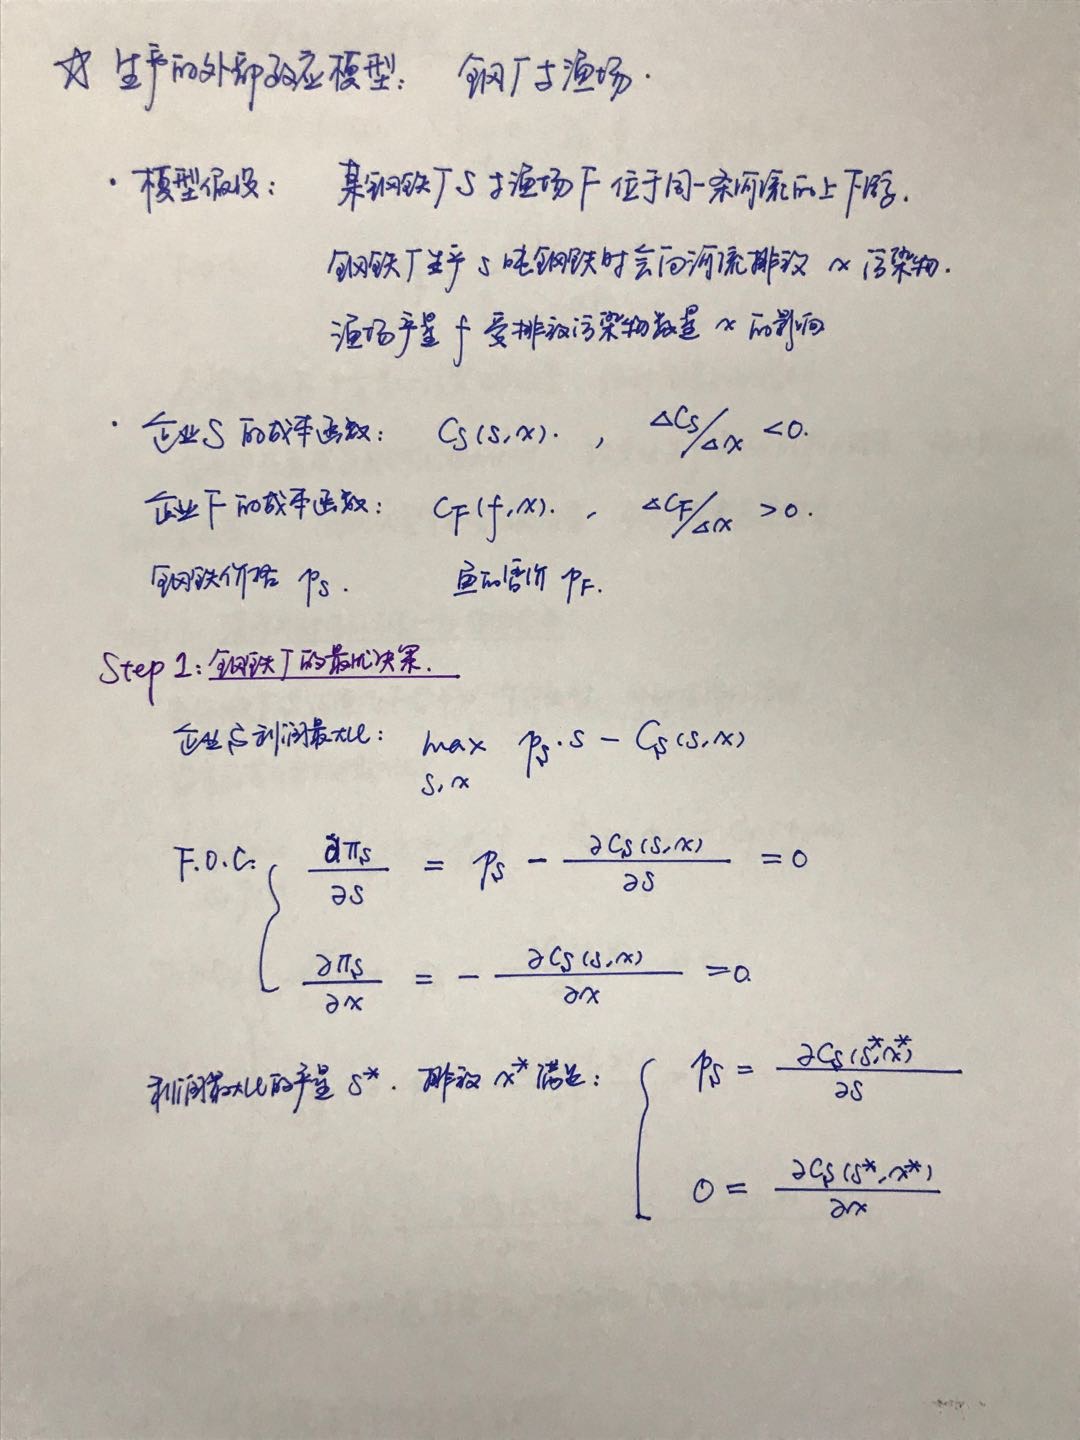 ☆ 生产的外部效应模型： 钢厂与渔场.
· 模型假设： 某钢铁厂 S 与渔场 F 位于同一条河流的上下游.
钢铁厂生产 s 吨钢铁时会向河流排放 x 污染物.
渔场产量 f 受排放污染物数量 x 的影响
· 企业S 的成本函数： Cs(s,x). , ΔCs/Δx <0.
企业F 的成本函数： CF(f,x). , ΔCF/Δx >0.
钢铁价格 ps. 鱼的售价 pF.
Step 1: 钢铁厂的最优决策.
企业S利润最大化： max ps·s − Cs(s,x)
s,x
F.O.C: { ∂πs/∂s = ps − ∂Cs(s,x)/∂s = 0
∂πs/∂x = − ∂Cs(s,x)/∂x = 0.
利润最大化的产量 s*. 排放 x* 满足： { ps = ∂Cs(s*,x*)/∂s
0 = ∂Cs(s*,x*)/∂x